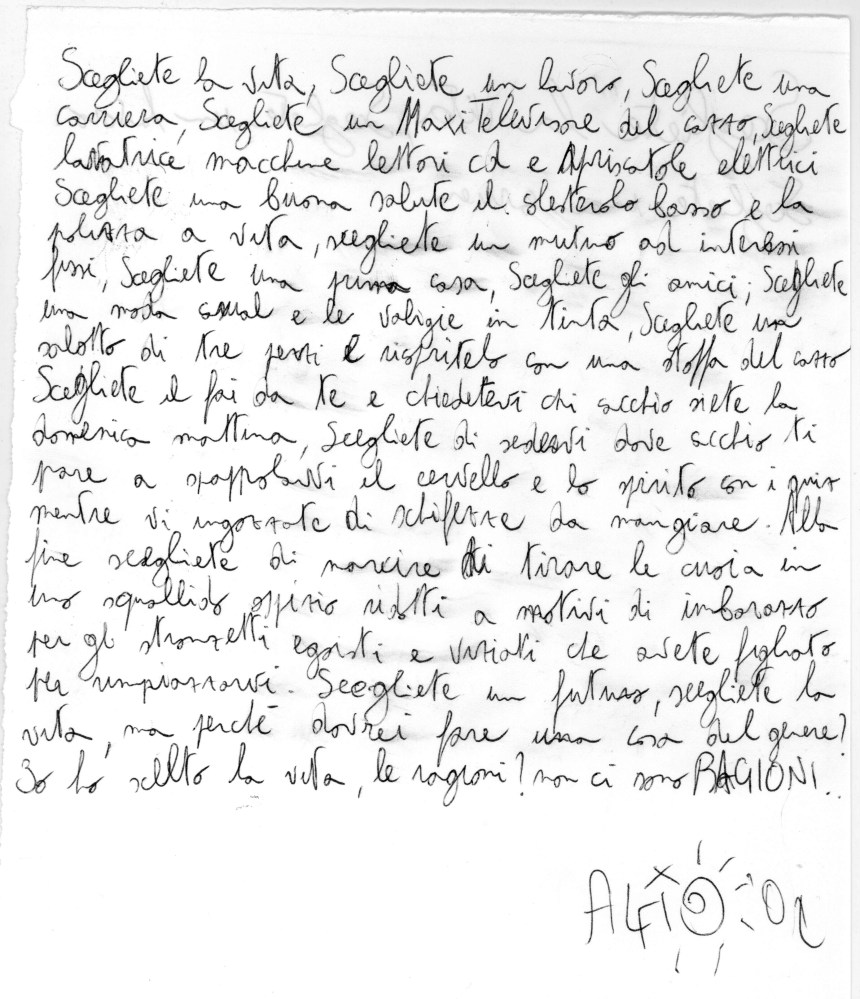 Scegliete la vita, Scegliete un lavoro, Scegliete una
carriera, Scegliete un Maxi Televisore del cazzo, Scegliete
lavatrice macchine lettori cd e Apriscatole elettrici
Scegliete una buona salute il colesterolo basso e la
polizza a vita, scegliete un mutuo ad interessi
fissi, Scegliete una prima casa, Scegliete gli amici, Scegliete
una moda casual e le valigie in tinta, Scegliete un
salotto di tre pezzi e ricopritelo con una stoffa del cazzo
Scegliete il fai da te e chiedetevi chi cacchio siete la
domenica mattina, Scegliete di sedervi dove cacchio ti
pare a spappolarvi il cervello e lo spirito con i quiz
mentre vi ingozzate di schifezze da mangiare. Alla
fine scegliete di marcire di tirare le cuoia in
uno squallido ospizio ridotti a motivi di imbarazzo
per gli stronzetti egoisti e viziati che avete figliato
per rimpiazzarvi. Scegliete un futuro, scegliete la
vita, ma perché dovrei fare una cosa del genere?
Io ho scelto la vita, le ragioni? non ci sono RAGIONI..